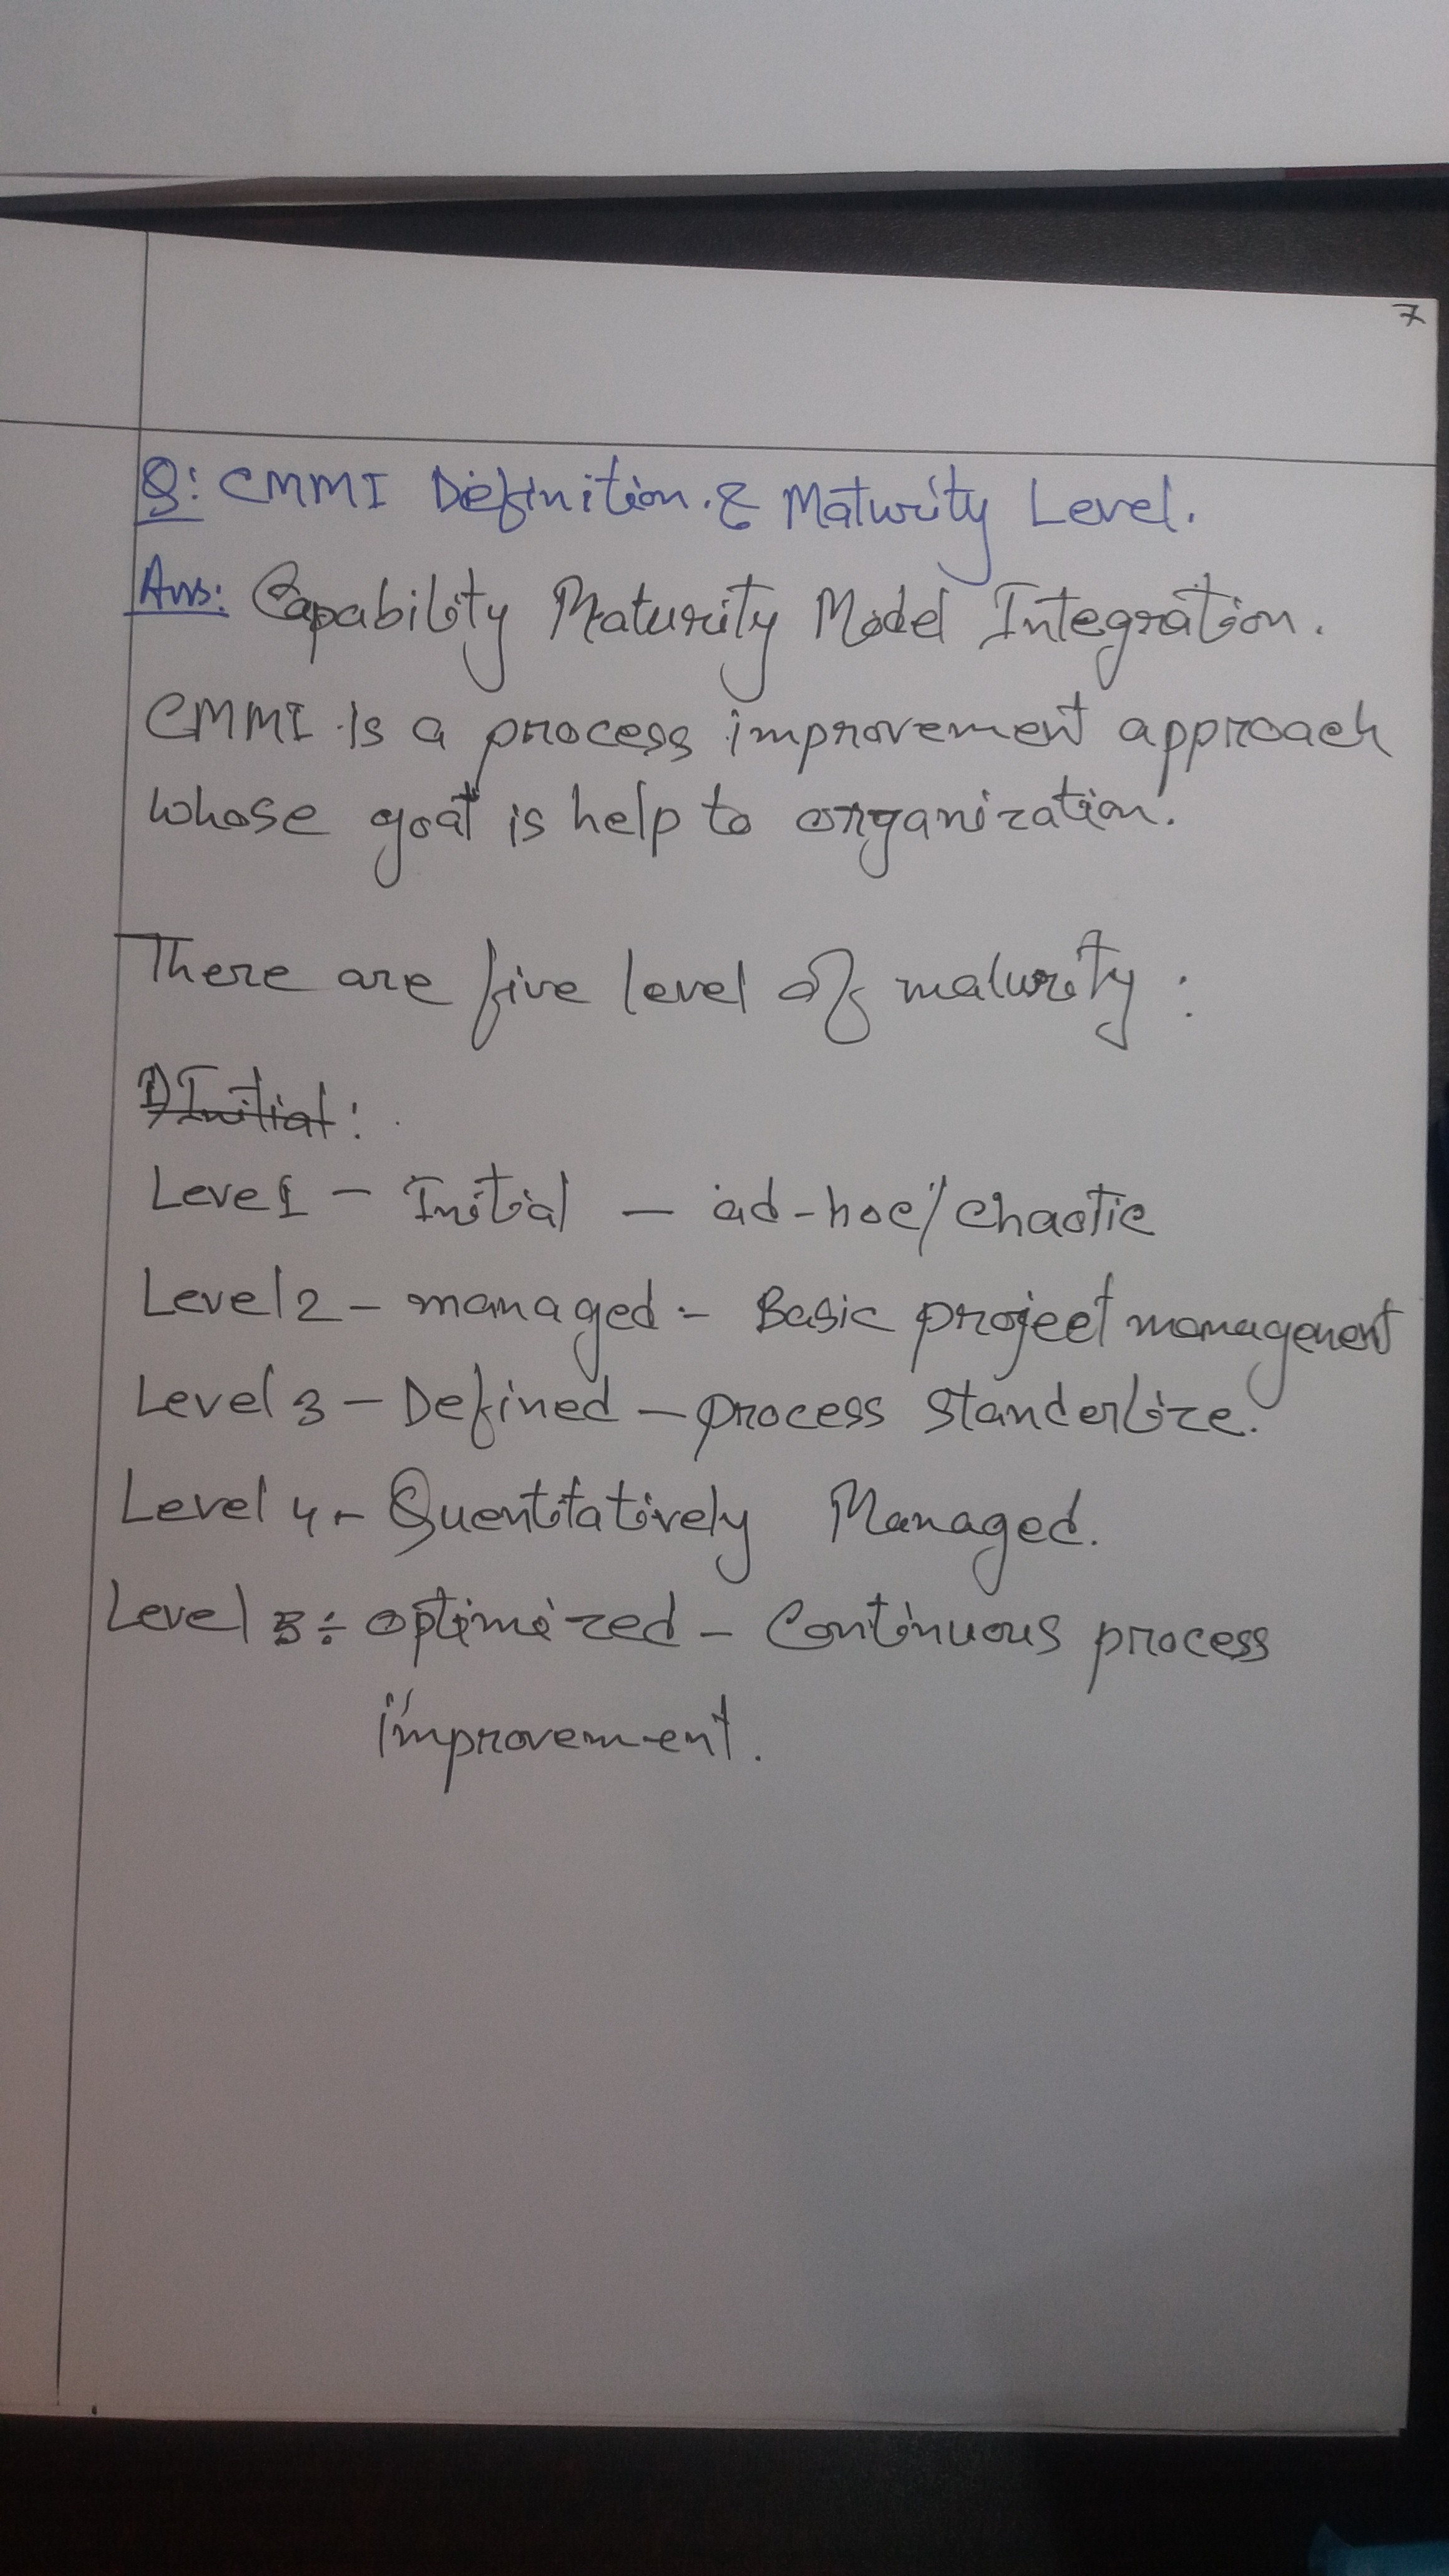 7
Q: CMMI Definition. & Maturity Level.
Ans: Capability Maturity Model Integration.
CMMI is a process improvement approach
whose goal is help to organization.
There are five level of maturity :
1) Initial :
Leve1 - Initial - ad-hoc/chaotic
Level 2 - managed :- Basic project management
Level 3 - Defined - process standerlize.
Level 4 - Quentitatively Managed.
Level 5 ÷ optimized - Continuous process
improvement.